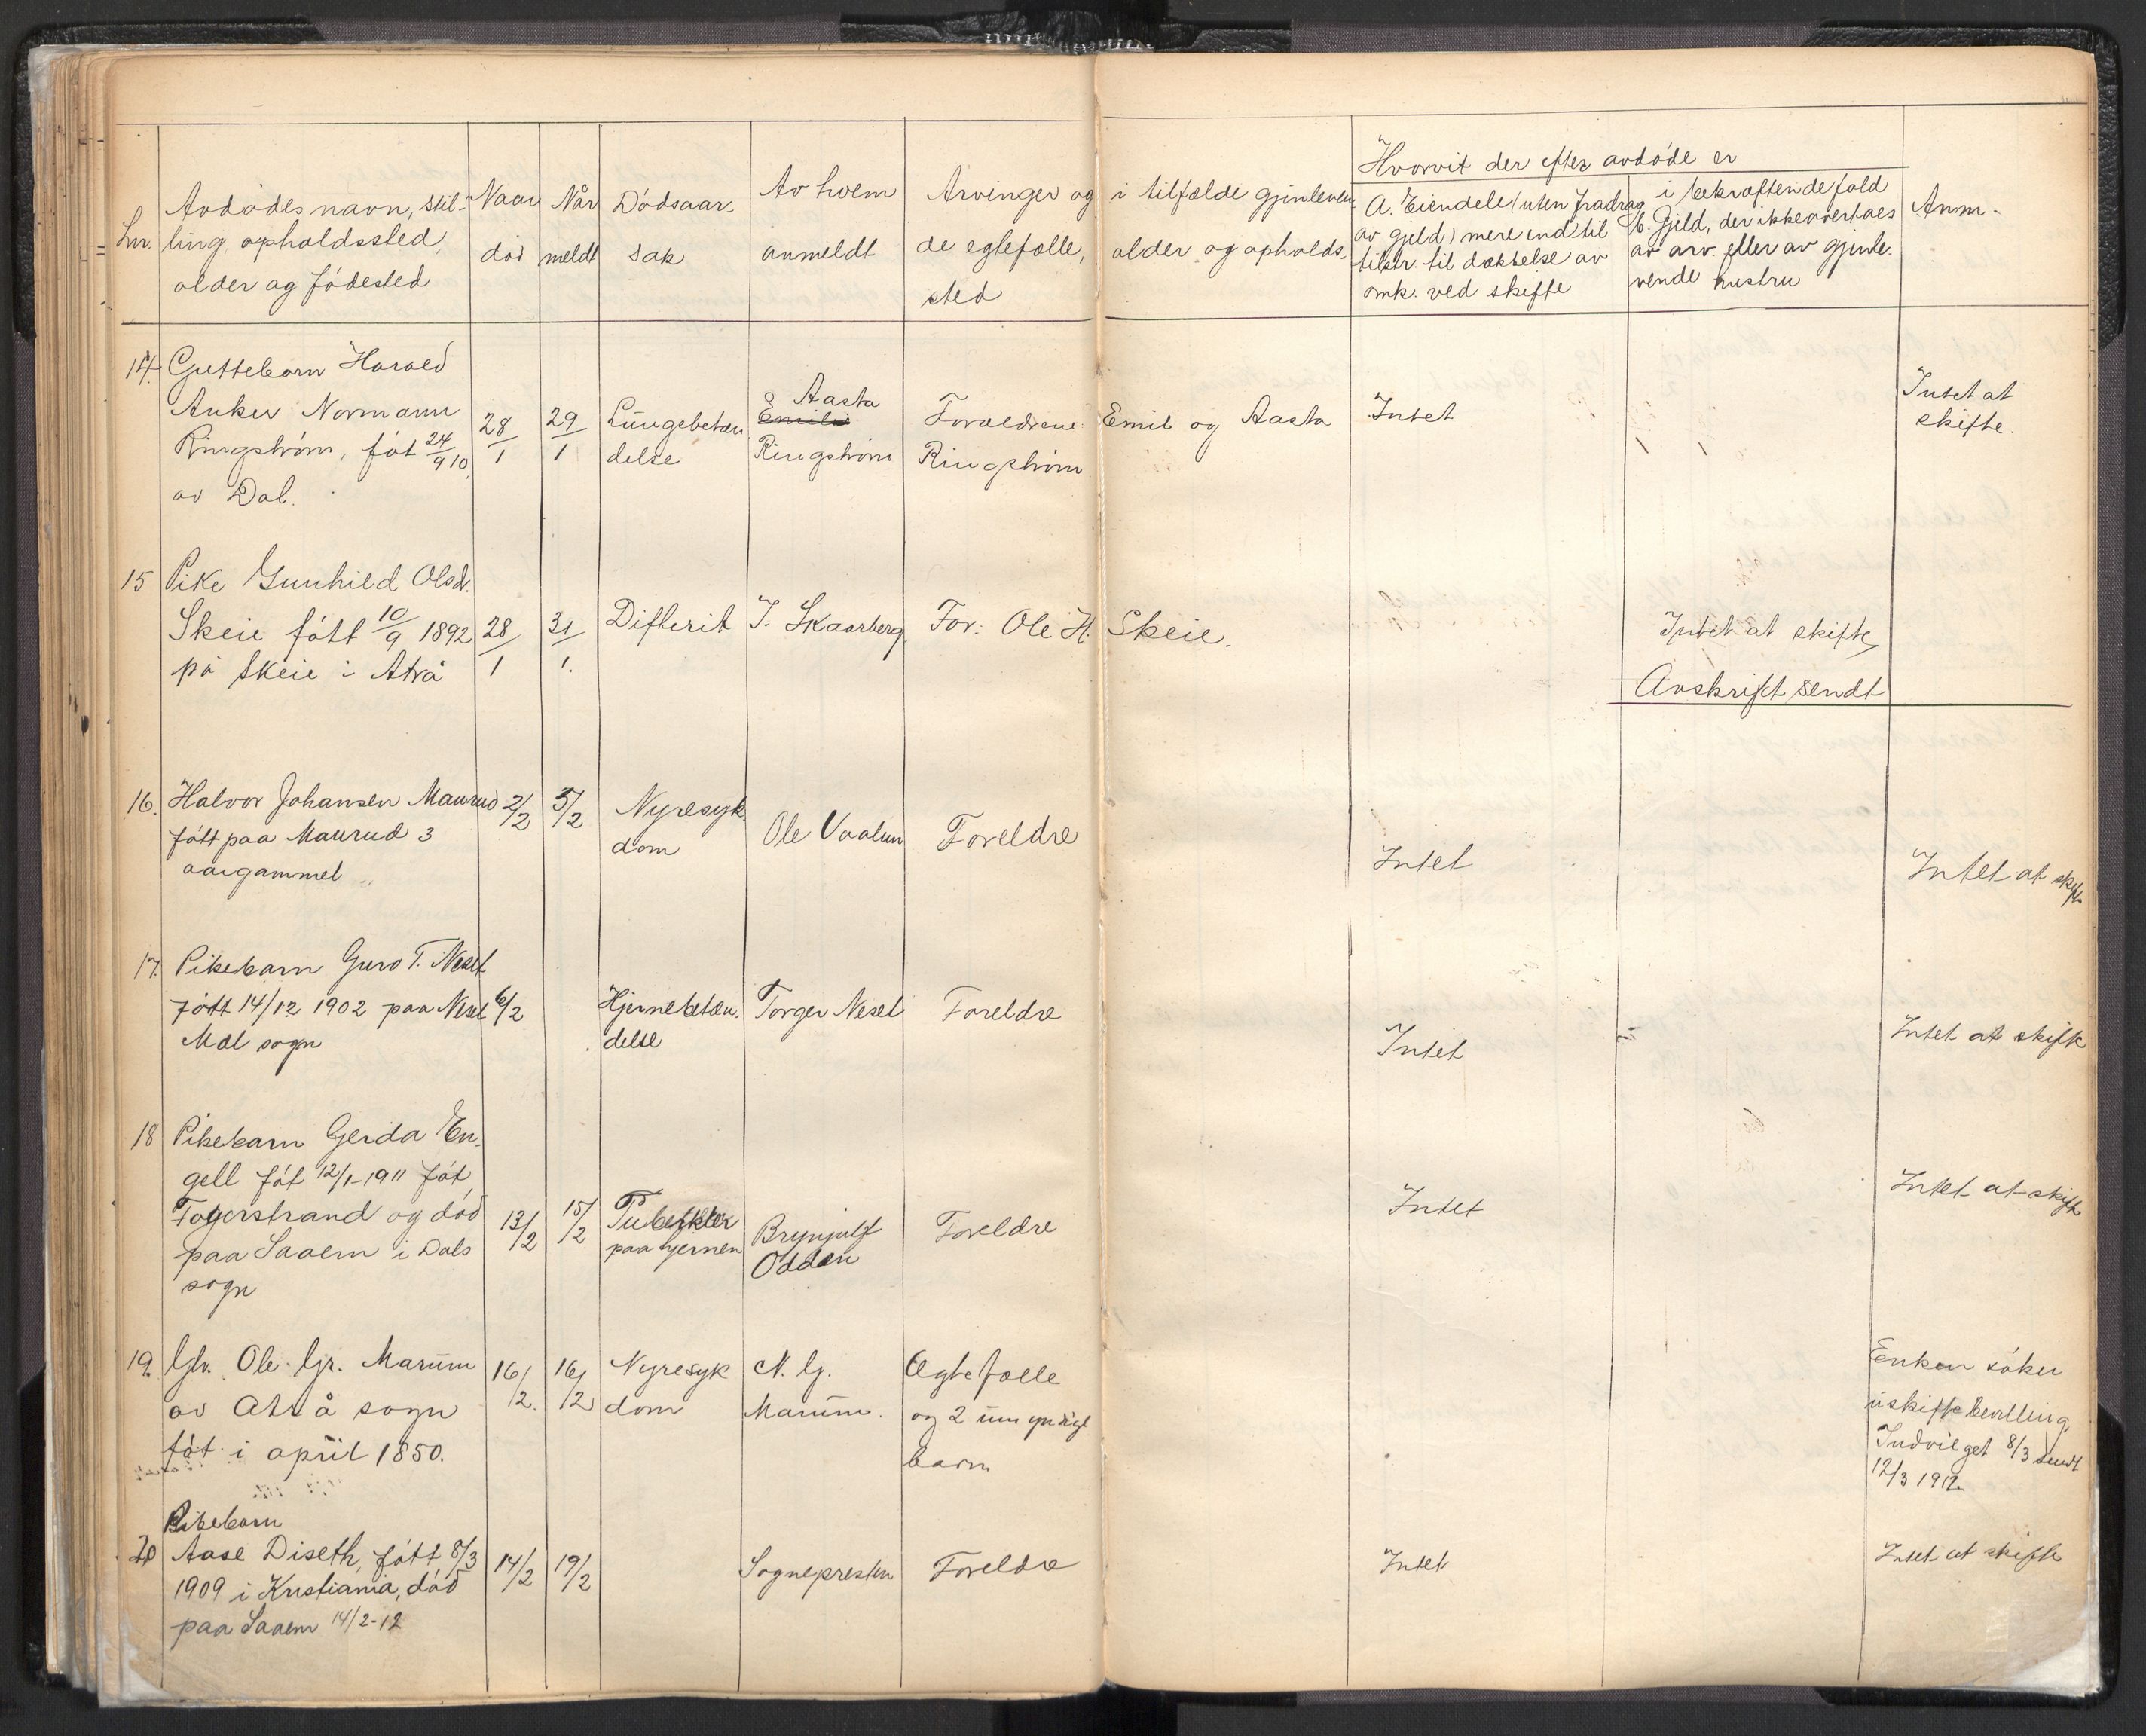 Hvorvit der efter avdøde er
Lnr. Avdødes navn, stil- Naar Når Dødsaar- Av hvem Arvinger og i tilfælde gjenleven- A. Eiendele (uten fradrag i bekræftende fald Anm-
ling, opholdssted, død meldt sak anmeldt de egtefælle, alder og opholds- av gjeld) mere end til b. Gjeld, der ikke overtaes
alder og fødested sted tilstr. til dækkelse av av arv. eller av gjenle-
omk. ved skifte vende hustru
14. Guttebarn Harald
Anker Normann 28/1 29/1 Lungebetæn Aasta Forældrene Emil og Aasta Intet Intet at
Ringstrøm, føt 24/9 10 delse Ringstrøm Ringstrøm skifte.
av Dal.
15 Pike Gunhild Olsdr.
Skeie født 10/9 1892 28/1 31/1. Difterit T. Skaarberg For: Ole H. Skeie. Intet at skifte
på Skeie i Atrå Avskrift sendt
16. Halvor Johansen Maurud 2/2 5/2 Nyresyk Ole Vaalun Foreldre
født paa Maurud 3 dom Intet Intet at skifte
aargammel
17. Pikebarn Guro T. Nesel
født 14/12 1902 paa Nesel 6/2 Hjernebetæn. Torger Nesel Foreldre
Mæl sogn delse Intet Intet at skifte
18 Pikebarn Gerda En-
gell føt 12/1-1911 føt Intet Intet at skifte
Fagerstrand og død 13/2 15/2 Tuberkler Brynjulf Foreldre
paa Saaem i Dals paa hjernen Odden
sogn
19. Gbr. Ole Gr. Marum 16/2. 16/2 Nyresyk N. G. Ægtefælle Enken søker
av Atrå sogn dom Marum. og 2 umyndige uskiftebevilling
føt i april 1850. barn Indvilget 8/3 sendt
12/3 1912.
Pikebarn
20 Aase Diseth, født 8/3 14/2 19/2 Sognepresten Foreldre Intet Intet at skifte
1909 i Kristiania, død
paa Saaem 14/2-12